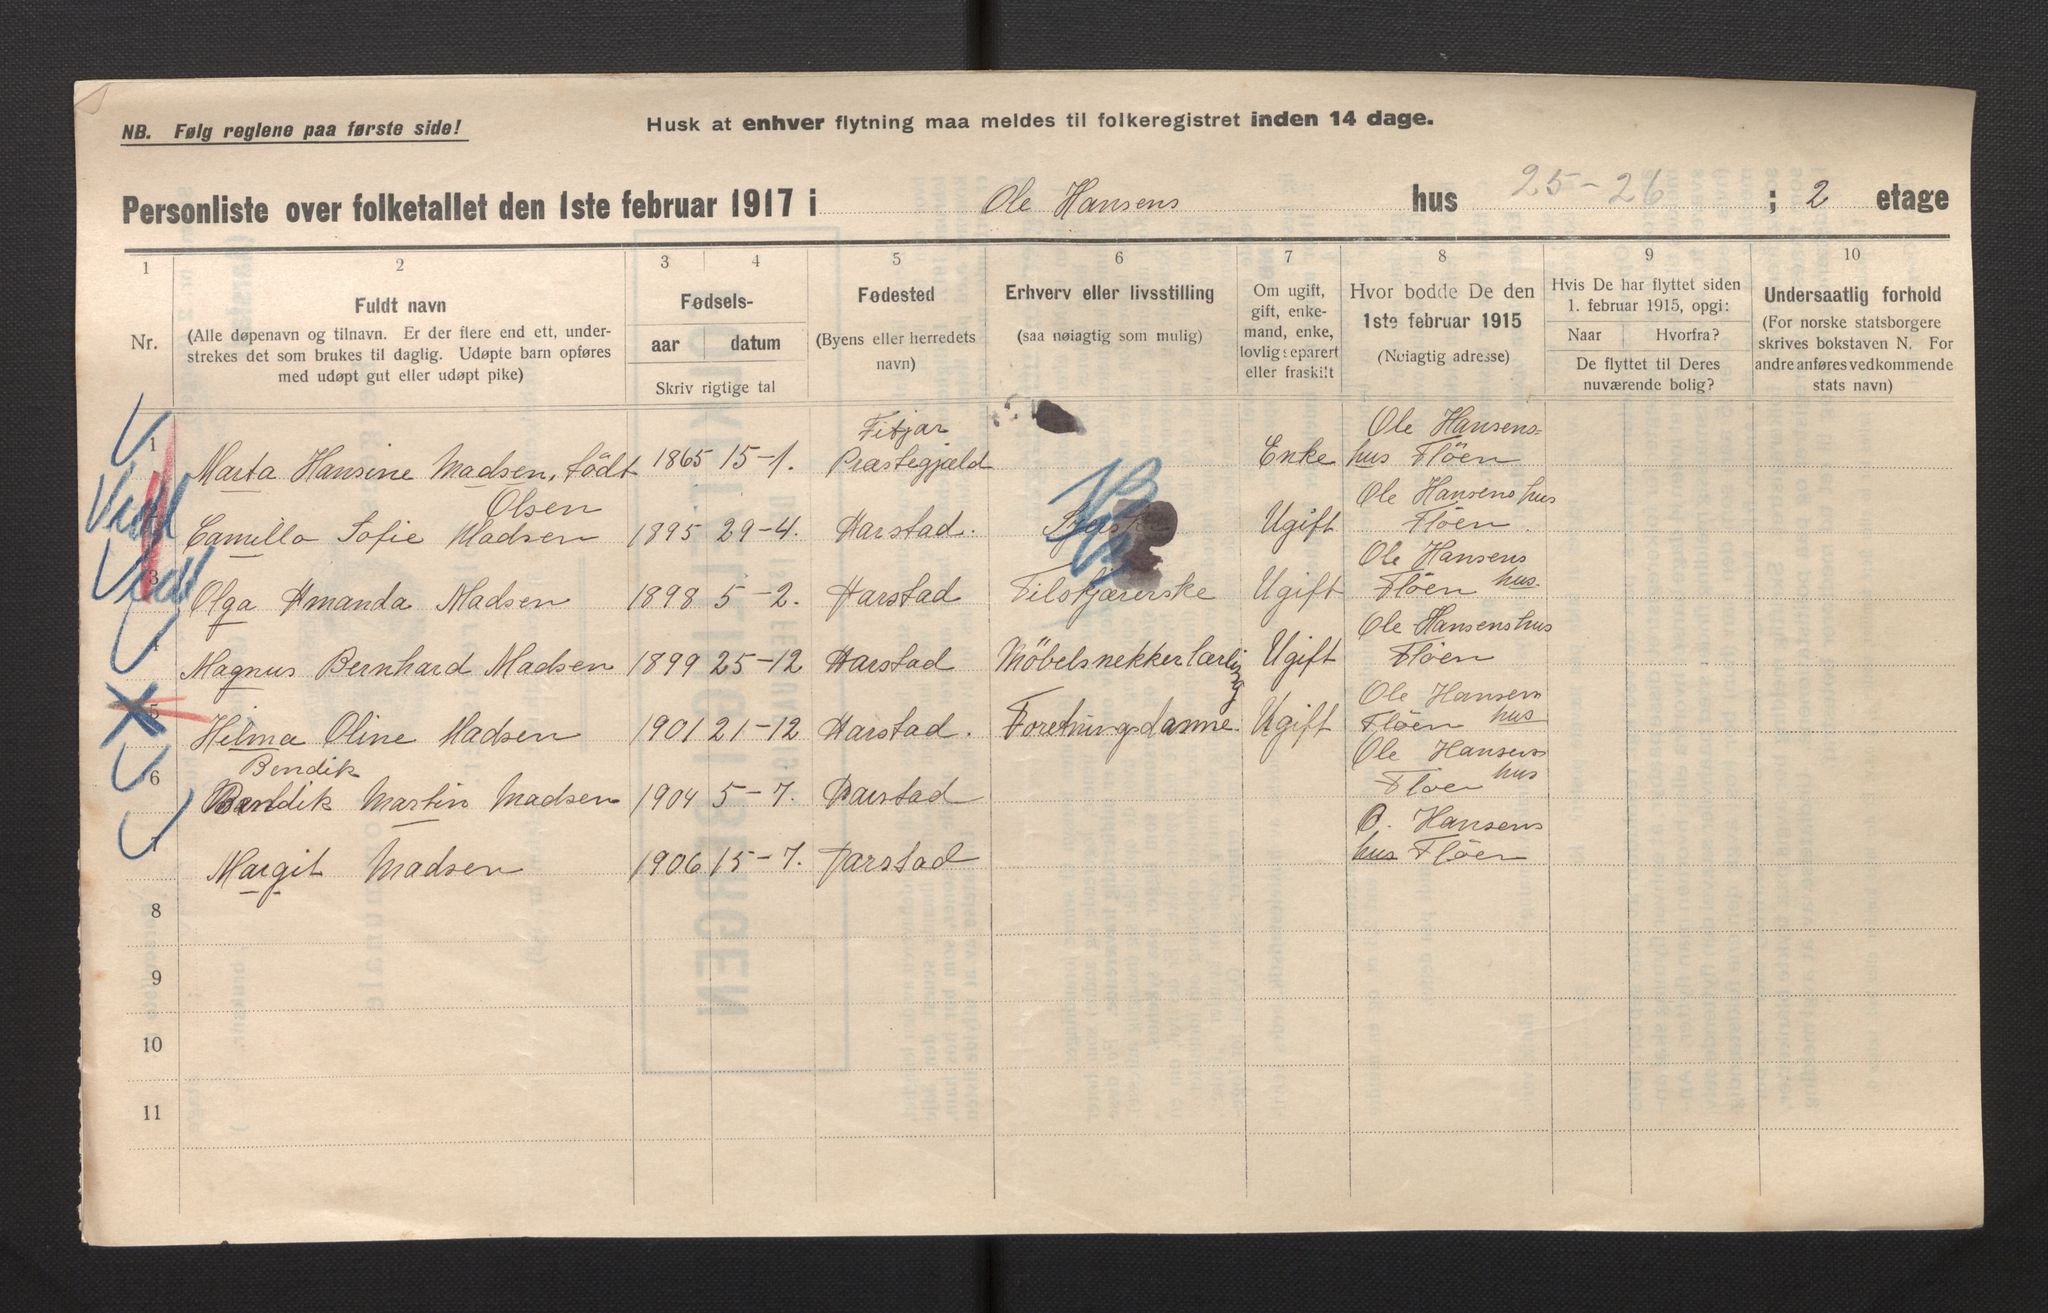 NB. Følg reglene paa første side!
Husk at enhver flytning maa meldes til folkeregistret inden 14 dage.
Personliste over folketallet den 1ste februar 1917 i Ole Hansens hus 25-26 ; 2 etage
1 2 3 4 5 6 7 8 9 10
Nr.
Fuldt navn
(Alle døpenavn og tilnavn. Er der flere end ett, under-
strekes det som brukes til daglig. Udøpte barn opføres
med udøpt gut eller udøpt pike)
Fødsels-
aar datum
Skriv rigtige tal
Fødested
(Byens eller herredets
navn)
Erhverv eller livsstilling
(saa nøiagtig som mulig)
Om ugift,
gift, enke-
mand, enke,
lovlig separert
eller fraskilt
Hvor bodde De den
1ste februar 1915
(Nøiagtig adresse)
Hvis De har flyttet siden
1. februar 1915, opgi:
Naar Hvorfra?
De flyttet til Deres
nuværende bolig?
Undersaatlig forhold
(For norske statsborgere
skrives bokstaven N. For
andre anføres vedkommende
stats navn)
Fitjar Ole Hansens-
1 Marta Hansine Madsen, födt 1865 15-1. Præstegjæld Enke hus Flöen
Olsen Ole Hansens hus
Camilla Sofie Madsen 1895 29-4. Harstad. Ugift Flöen.
Ole Hansens
3 Olga Amanda Madsen 1898 5-2. Harstad Tilskjærerske Ugift Flöen hus.
Ole Hansens hus
4 Magnus Bernhard Madsen 1899 25-12 Harstad Möbelsnekkerlærling Ugift Flöen
Ole Hansens
5 Hilma Oline Madsen 1901 21-12 Harstad. Ugift Flöen hus
Bendik Ole Hansens
6 Bendik Martin Madsen 1904 5-7. Harstad Flöen hus
O. Hansens
7 Margit Madsen 1906 15-7. Harstad hus Flöen
8
9
10
11